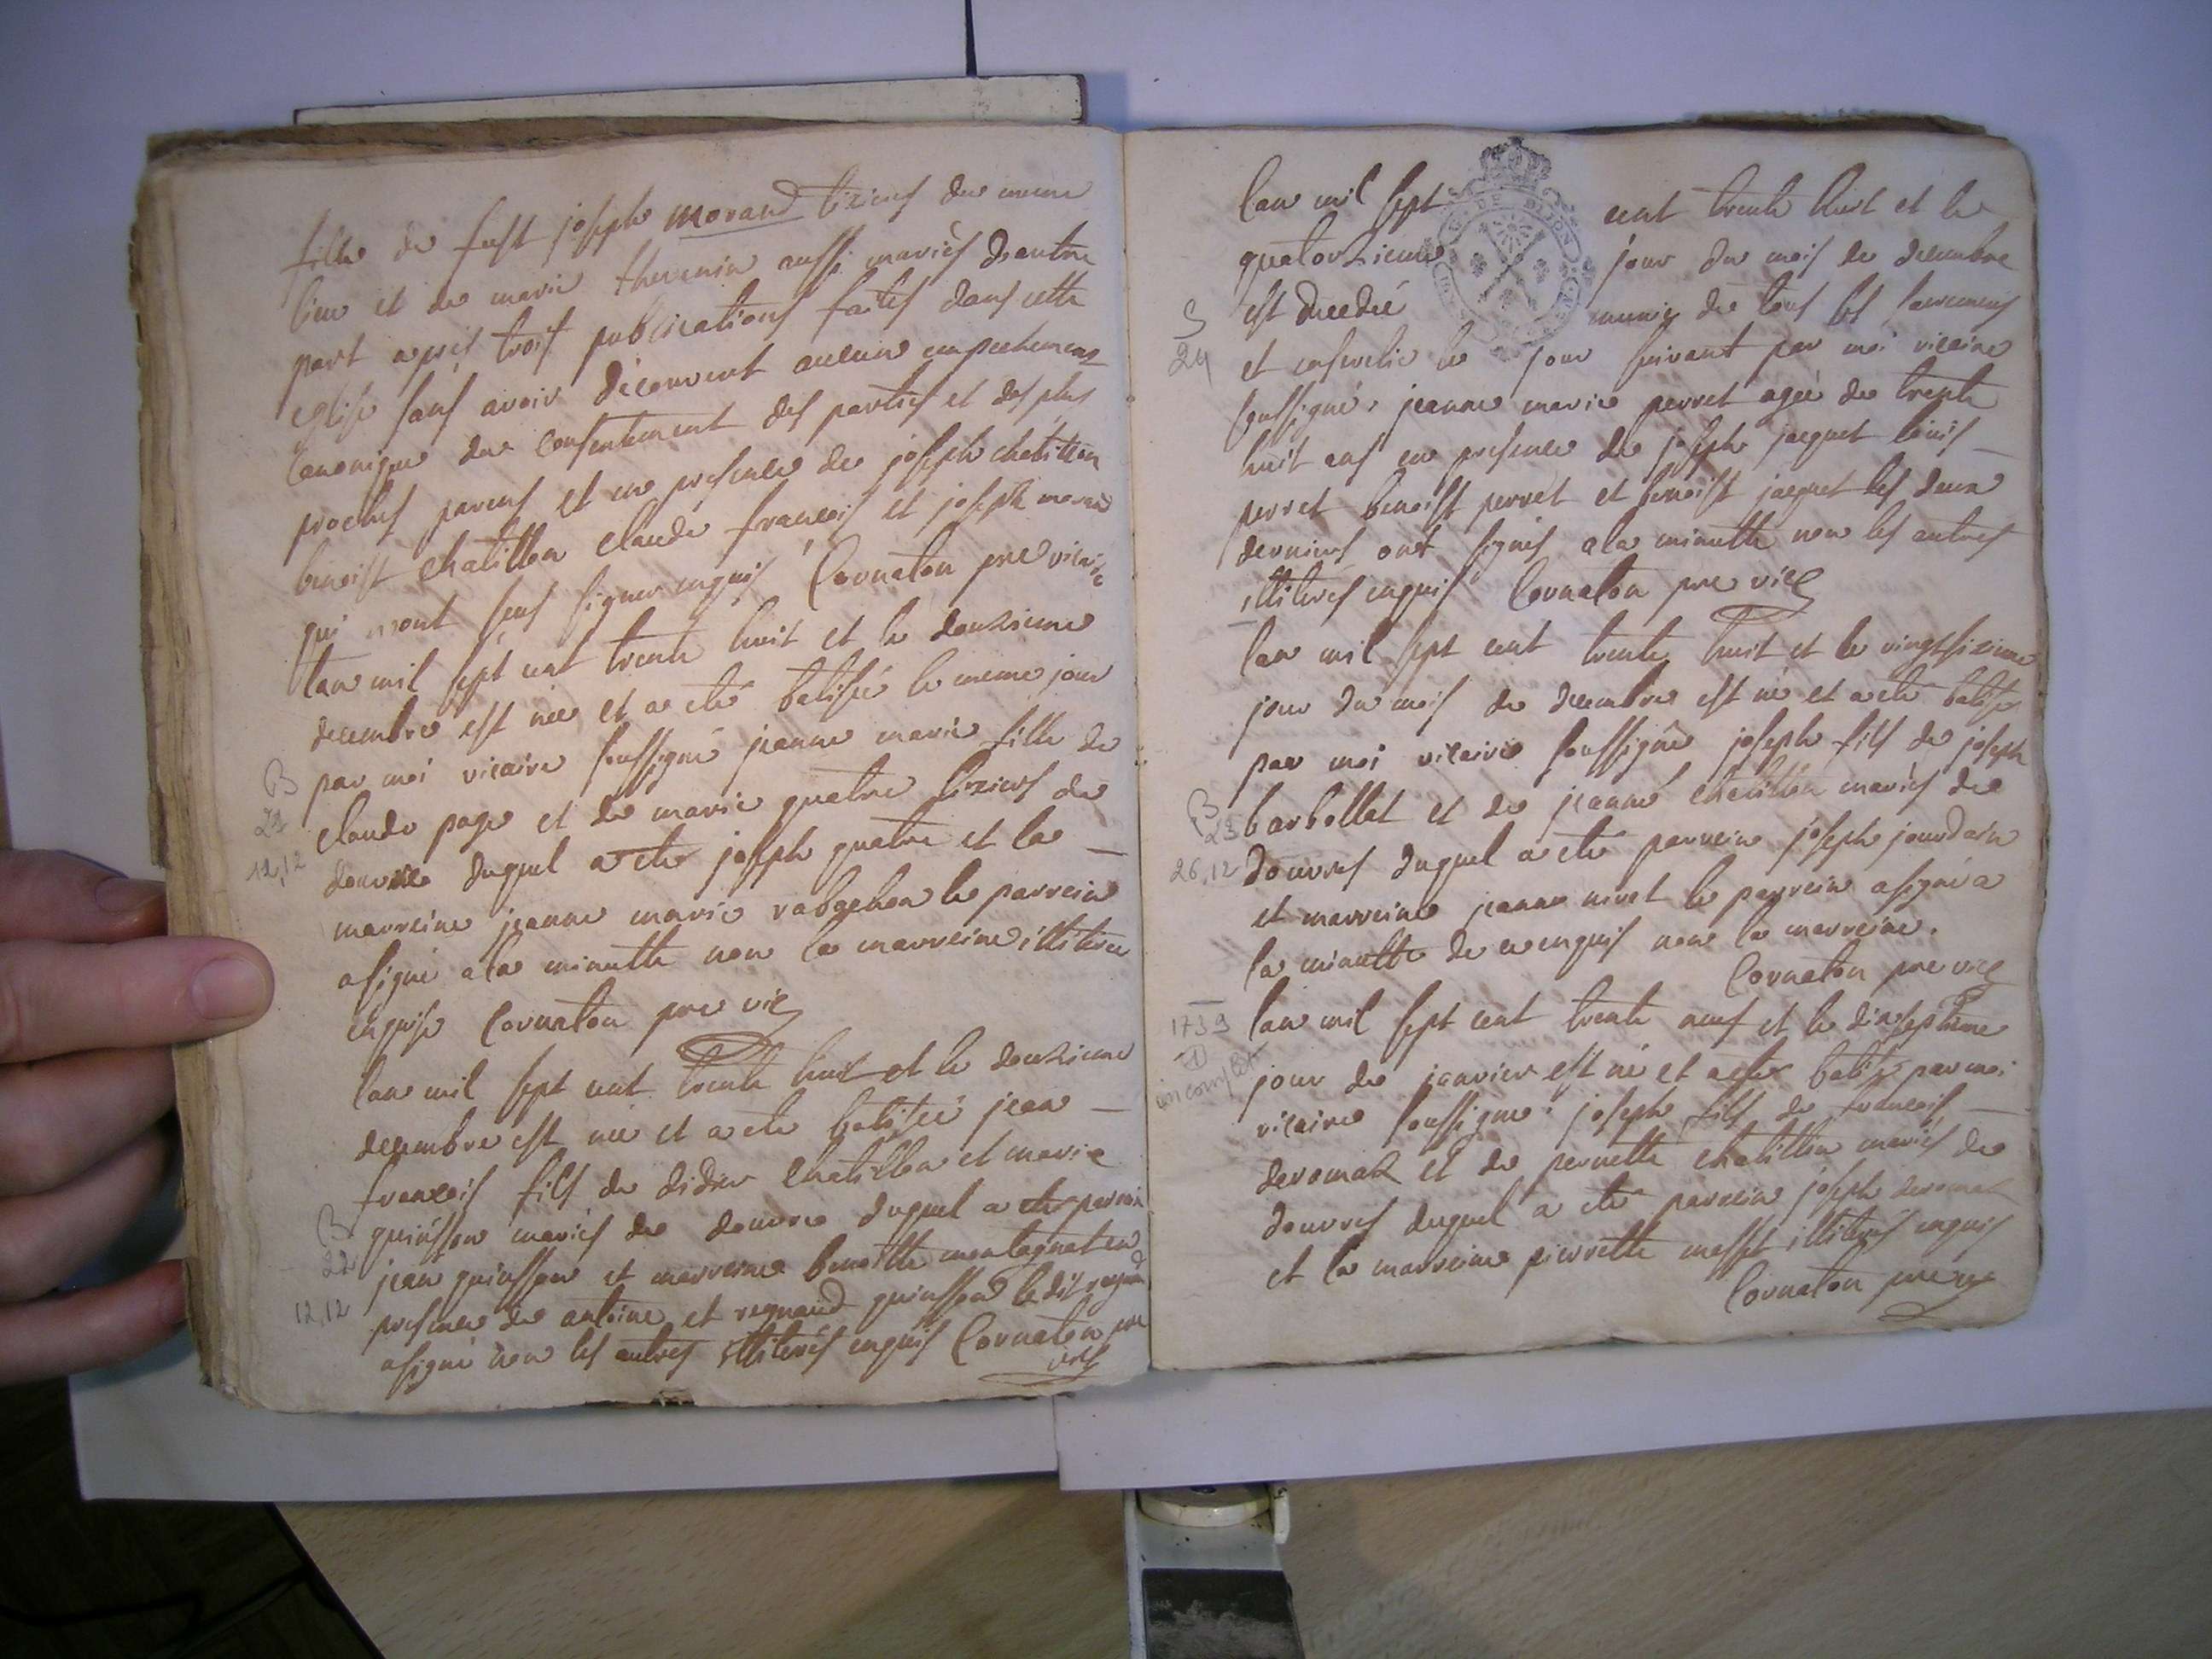 fille de fust joseph morand vivans du meme
lieu et de marie thevenin aussi mariés d'autre
part apres trois publications faites dans cette
eglise sans avoir découvert aucun empechement
canonique du consentement des parties et des plus
proches parens et en presence de joseph chatillon
benoist chatillon claude françois et joseph morand
qui n'ont sceus signer enquis Cornaton pre vicaire
l'an mil sept cent trente huit et le douzieme
decembre est née et a eté batisée le meme jour
B par moi vicaire soussigné jeanne marie fille de
claude page et de marie quatre
12,12 douvre duquel a eté joseph quatre et la
marreine jeanne marie le parrein
a signé a la minutte non la marreine illiteree
enquise Cornaton pre vic
l'an mil sept cent trente huit et le douzieme
decembre est né et a eté batisé jean
françois fils de didier chatillon et marie
B quinsson mariés de douvre duquel a eté parrein
22 jean quinsson et marreine benoitte montagnat en
12,12 presence de antoine et reynaud quinsson ledit reynaud
a signé non les autres illiterés enquis Cornaton pre
vic
l'an mil sept cent trente huit et le
G. DE DIJON
quatorzieme jour du mois de decembre
S est decedée munie de tous les sacremens
24 et ensevelie le jour suivant par moi vicaire
soussigné, jeanne marie perret agée de trente
huit ans en presence de joseph jacquet louis
perret benoist perret et benoist jacquet les deux
derniers ont signés a la minutte non les autres
illiterés enquis Cornaton pre vic
l'an mil sept cent trente huit et le vingt sizieme
jour du mois de decembre est né et a eté batisé
par moi vicaire soussigné joseph fils de joseph
B 25 barbollat et de jeanne chatillon mariés de
26,12 douvres duquel a eté parrein joseph jourdain
et marreine jeanne nivet le parrein a signé a
la minutte de ce enquis non la marreine.
Cornaton pre vic
1739 l'an mil sept cent trente neuf et le dixseptieme
incomplet jour de janvier est né et a eté batisé par moi
vicaire soussigné joseph fils de françois
deromas et de pernette chatillon mariés de
douvres duquel a eté parrein joseph deromas
et la marreine pierrette illiterés enquis
Cornaton pre vic